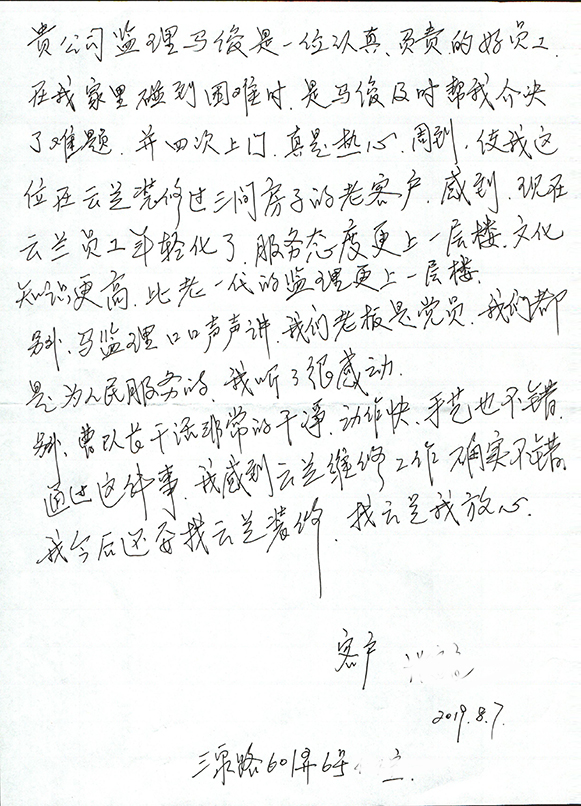 贵公司监理马俊是一位认真、负责的好员工.
在我家里碰到困难时.是马俊及时帮我介决
了难题.并四次上门.真是热心.周到.使我这
位在云兰装修过三间房子的老客户.感到.现在
云兰员工年轻化了.服务态度更上一层楼.文化
知识更高.比老一代的监理更上一层楼.
别、马监理口口声声讲.我们老板是党员.我们都
是为人民服务的.我听了很感动.
别、曹队长干活非常的干净.动作快、手艺也不错.
通过这件事.我感到云兰维修工作确实不错.
我今后还要找云兰装修.找云兰我放心.
客户
2019.8.7.
三泉路601弄6号